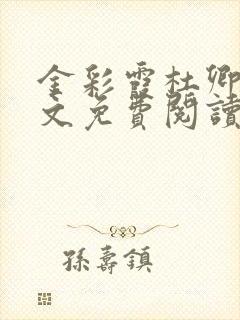 金彩霞杜卿
文免費閱讀
孫壽鎮